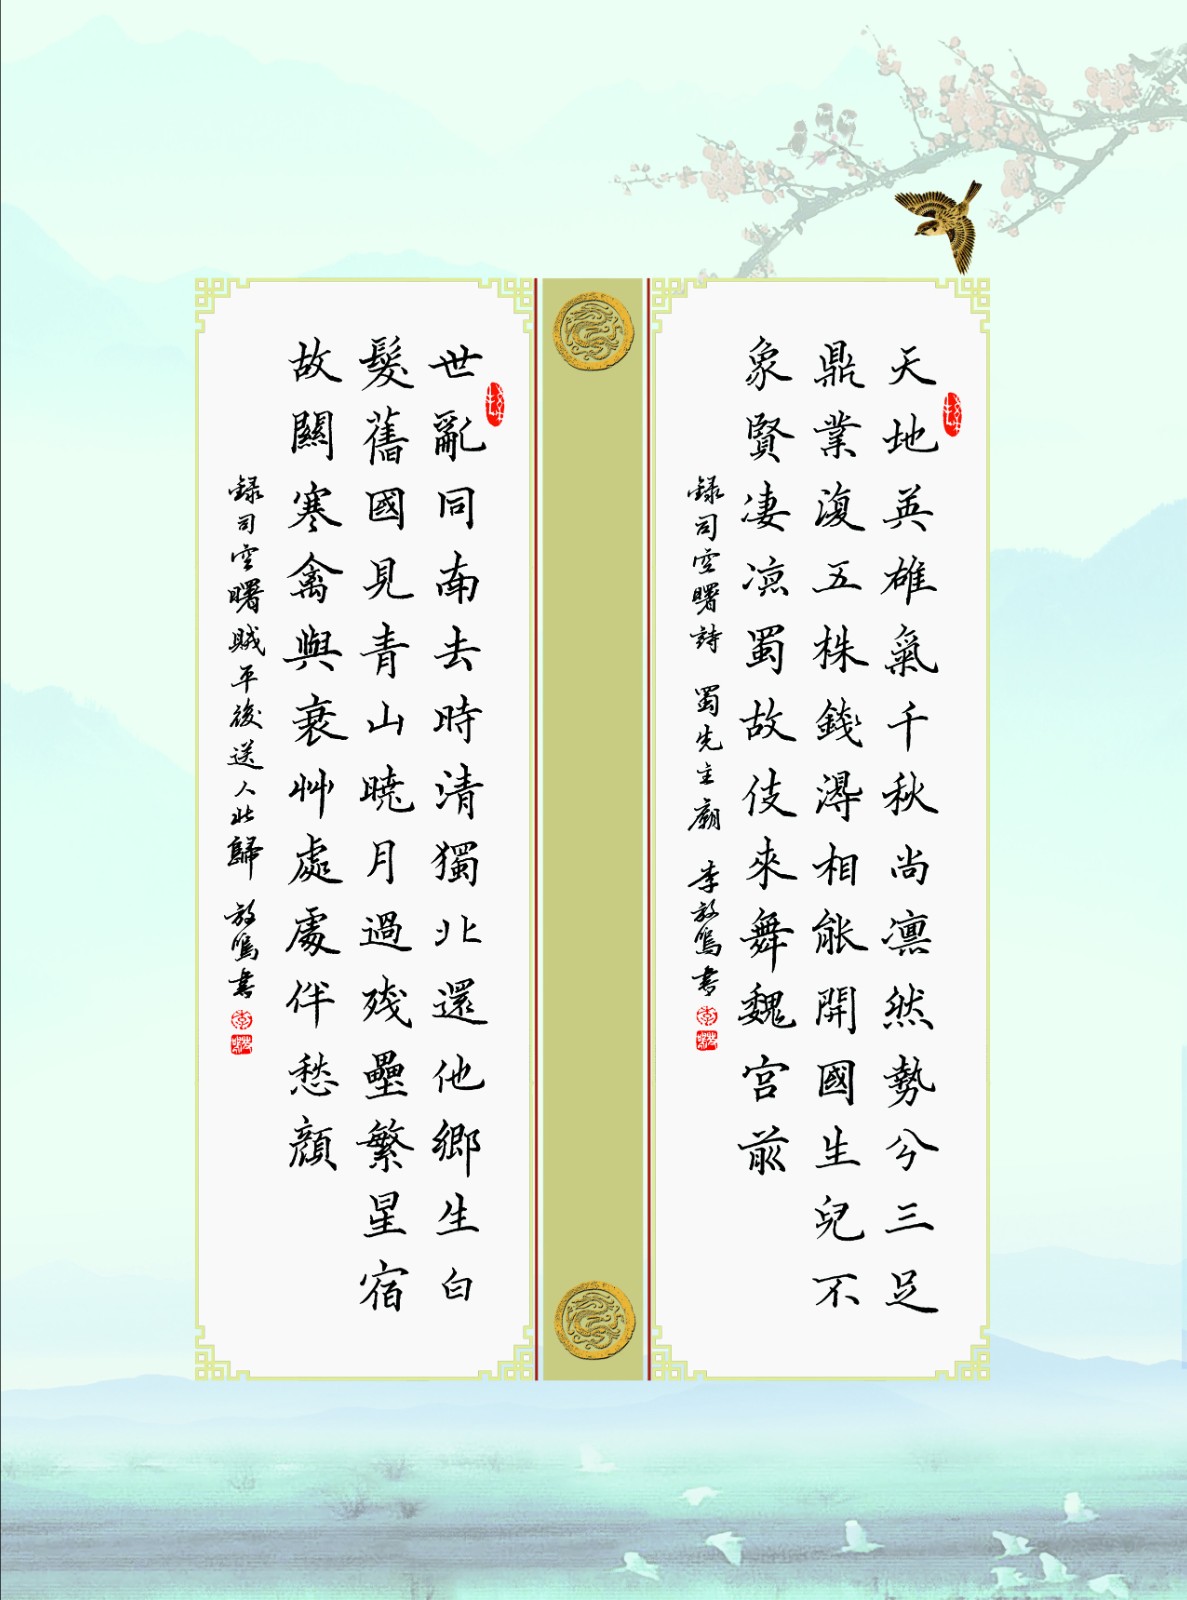 天地英雄氣千秋尚凛然勢分三足
鼎業復五株錢得相能開國生兒不
象賢凄凉蜀故伎來舞魏宫前
録司空曙詩 蜀先主廟 李放鳴書
世亂同南去時清獨北還他鄉生白
髮舊國見青山曉月過殘壘繁星宿
故關寒禽與衰艸處處伴愁顔
録司空曙賊平後送人北歸 放鳴書